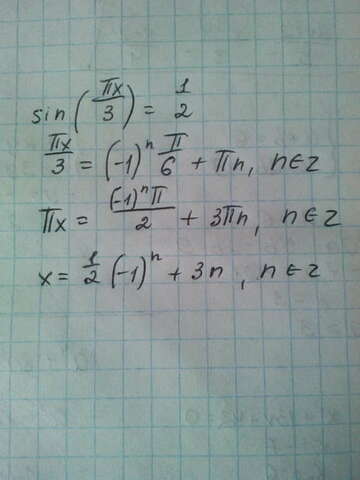 sin(πx/3) = 1/2
πx/3 = (-1)^n π/6 + πn, n∈z
πx = (-1)^n π/2 + 3πn, n∈z
x = 1/2 (-1)^n + 3n, n∈z